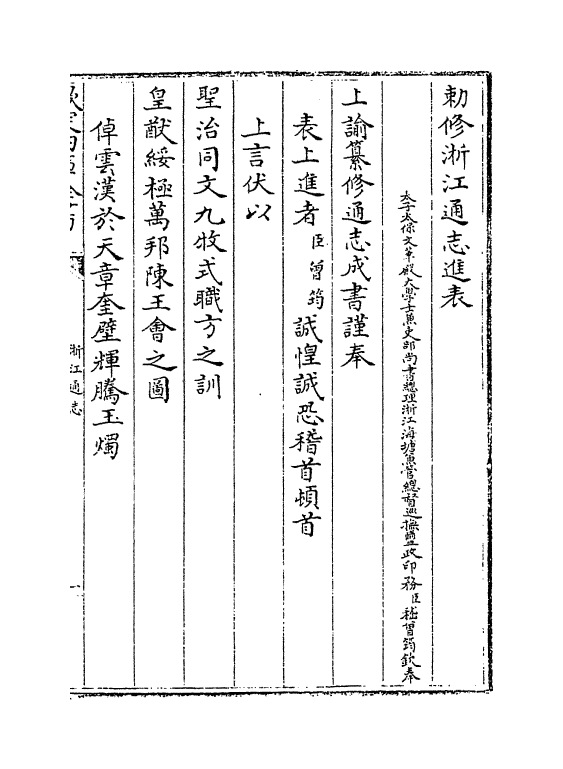 勅修浙江通志進表
太子太保文華殿大學士兼吏部尚書總理浙江海塘兼管總督巡撫鹽政印務臣嵇曾筠欽奉
上諭纂修通志成書謹奉
表上進者臣曾筠誠惶誠恐稽首頓首
上言伏以
聖治同文九牧式職方之訓
皇猷綏極萬邦陳王會之圖
倬雲漢於天章奎壁輝騰玉燭
浙江通志
一